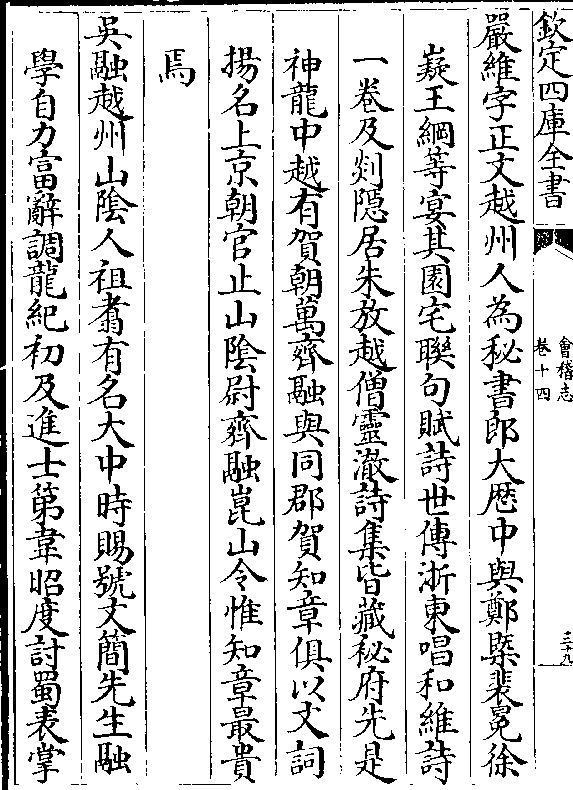 欽定四庫全書
會稽志
卷十四
三十九
嚴維字正文越州人為秘書郎大厯中與鄭槩裴冕徐
嶷王綱等宴其園宅聯句賦詩世傳浙東唱和維詩
一卷及剡隠居朱放越僧靈澈詩集皆藏秘府先是
神龍中越有賀朝萬齊融與同郡賀知章俱以文詞
揚名上京朝官止山隂尉齊融崑山令惟知章最貴
焉
吳融越州山隂人祖翥有名大中時賜號文簡先生融
學自力富辭調龍紀初及進士第韋昭度討蜀表掌